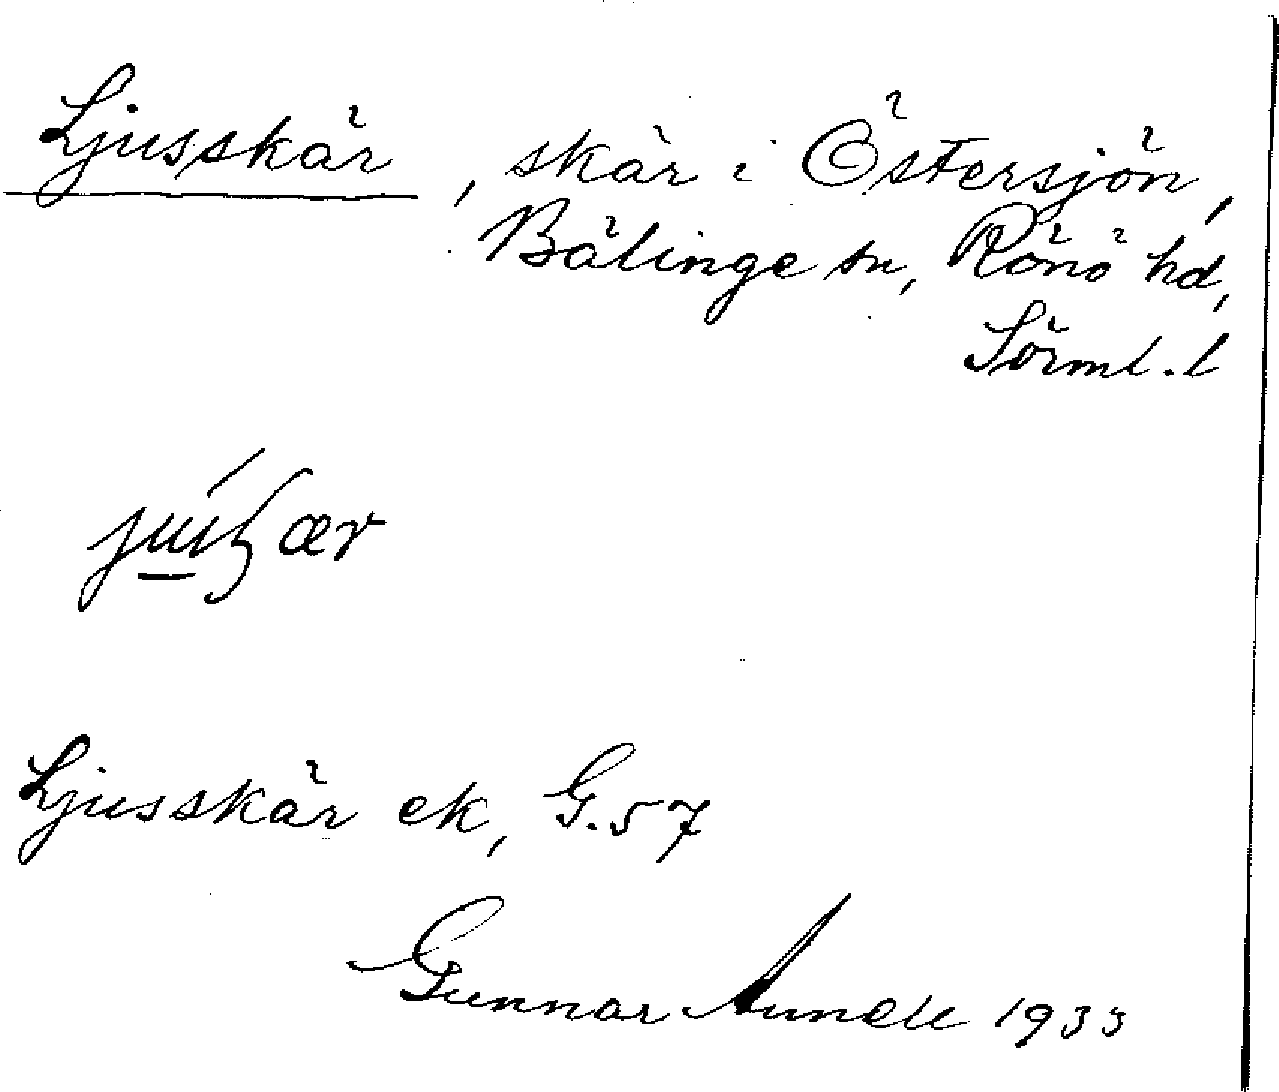 Ljusskär, skär i Östersjön,
Bälinge sn, Rönö hd,
Sörml. l
Ljusskär ek, G.57
Gunnar Aunell 1933